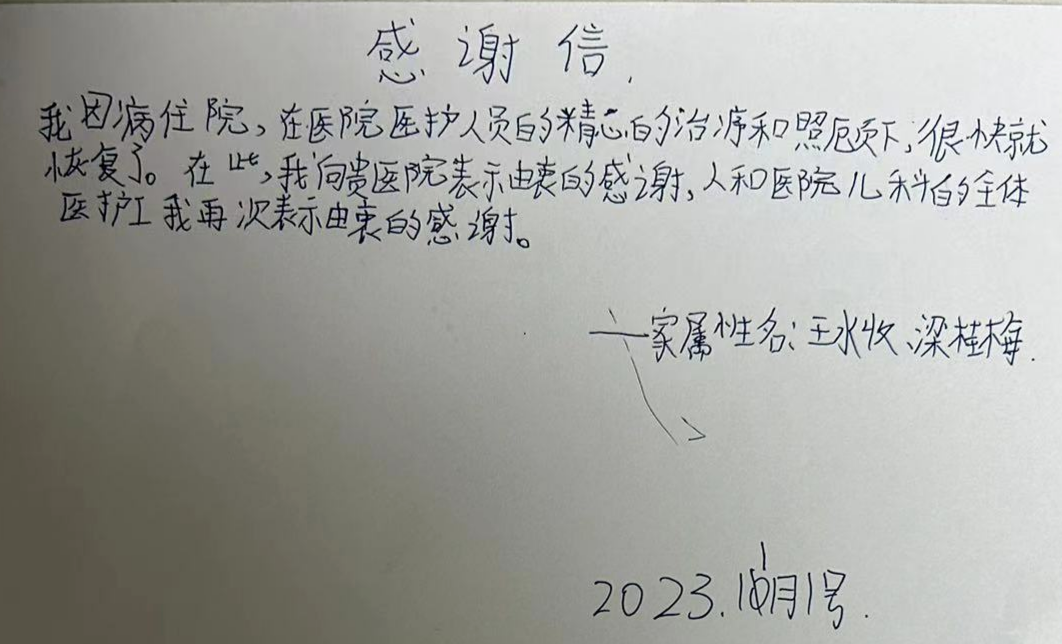 感谢信.
我因病住院,在医院医护人员的精心的治疗和照顾下,很快就
恢复了。在此,我向贵医院表示由衷的感谢,人和医院儿科的全体
医护工我再次表示由衷的感谢。
家属性名:王水收、梁桂梅.
2023.11月1号.